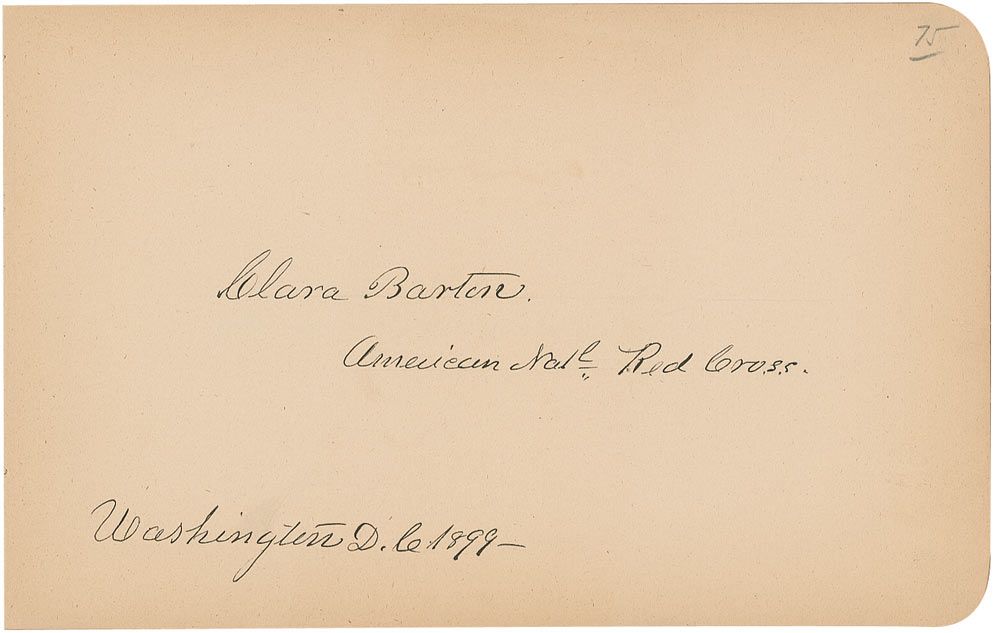 75
Clara Barton.
American Nat^l Red Cross.
Washington D.C. 1899—